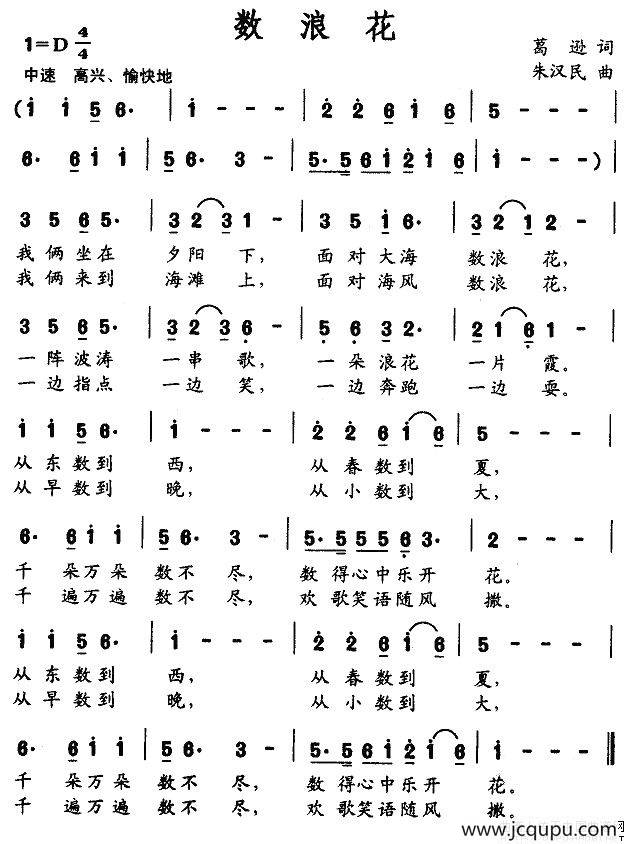 数 浪 花
1=D 4/4
葛 逊 词
中速 高兴、愉快地
朱汉民 曲
(i i 5 6· | i - - - | 2 2 6 i 6 | 5 - - - |
6· 6 i i | 5 6· 3 - | 5· 5 6 i 2 i 6 | i - - - )
3 5 6 5· | 3 2 3 1 - | 3 5 i 6· | 3 2 1 2 - |
我 俩 坐 在 夕 阳 下, 面 对 大 海 数 浪 花,
我 俩 来 到 海 滩 上, 面 对 海 风 数 浪 花,
3 5 6 5· | 3 2 3 6 - | 5 6 3 2· | 2 1 6 1 - |
一 阵 波 涛 一 串 歌, 一 朵 浪 花 一 片 霞。
一 边 指 点 一 边 笑, 一 边 奔 跑 一 边 耍。
i i 5 6· | i - - - | 2 2 6 i 6 | 5 - - - |
从 东 数 到 西, 从 春 数 到 夏,
从 早 数 到 晚, 从 小 数 到 大,
6· 6 i i | 5 6· 3 - | 5· 5 5 5 6 3· | 2 - - - |
千 朵 万 朵 数 不 尽, 数 得 心 中 乐 开 花。
千 遍 万 遍 数 不 尽, 欢 歌 笑 语 随 风 撒。
i i 5 6· | i - - - | 2 2 6 i 6 | 5 - - - |
从 东 数 到 西, 从 春 数 到 夏,
从 早 数 到 晚, 从 小 数 到 大,
6· 6 i i | 5 6· 3 - | 5· 5 6 i 2 i 6 | i - - - ‖
千 朵 万 朵 数 不 尽, 数 得 心 中 乐 开 花。
千 遍 万 遍 数 不 尽, 欢 歌 笑 语 随 风 撒。
www.jcqupu.com